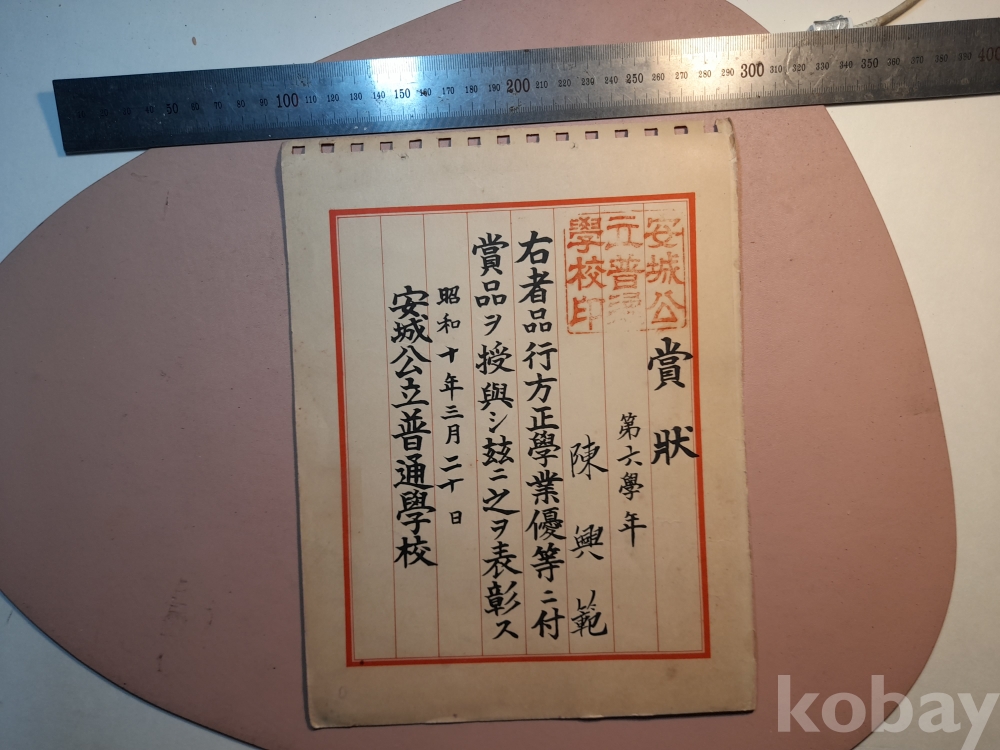 賞狀
第六學年
陳興範
右者品行方正學業優等ニ付
賞品ヲ授與シ玆ニ之ヲ表彰ス
昭和十年三月二十日
安城公立普通學校
安城公
立普通
學校印
50 100 150 200 210 220 230 240 250 260 270 280 290 300 310 320 330 340 350 360 370 380 390 400
kobay